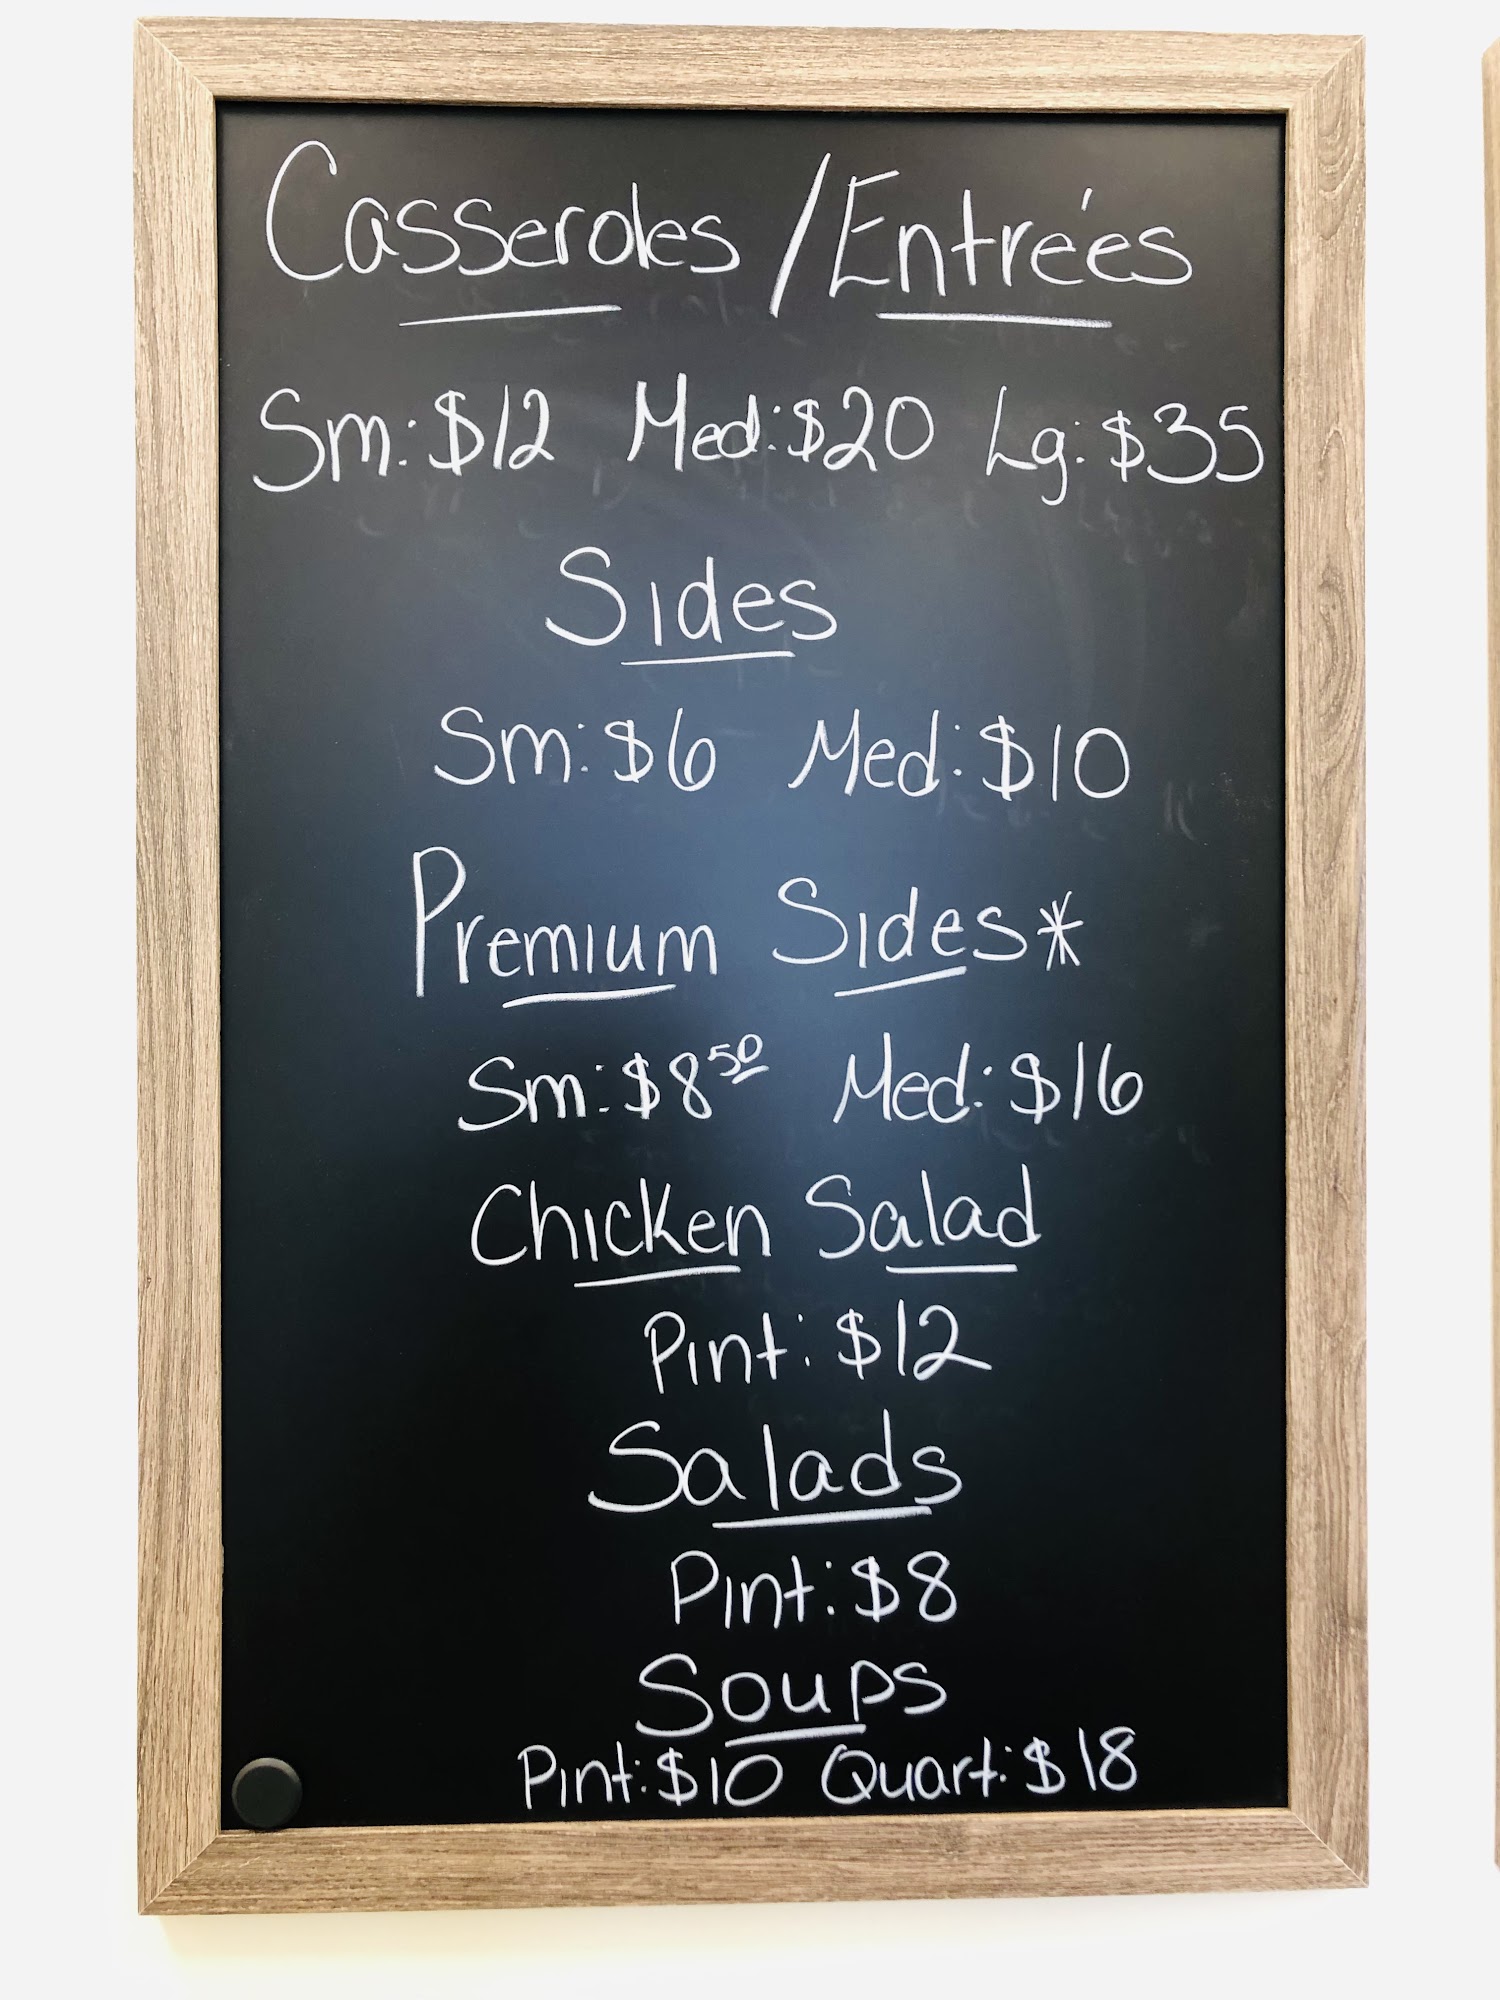 Casseroles/Entrées
Sm:$12 Med:$20 Lg:$35
Sides
Sm:$6 Med:$10
Premium Sides*
Sm:$8⁵⁰ Med:$16
Chicken Salad
Pint:$12
Salads
Pint:$8
Soups
Pint:$10 Quart:$18